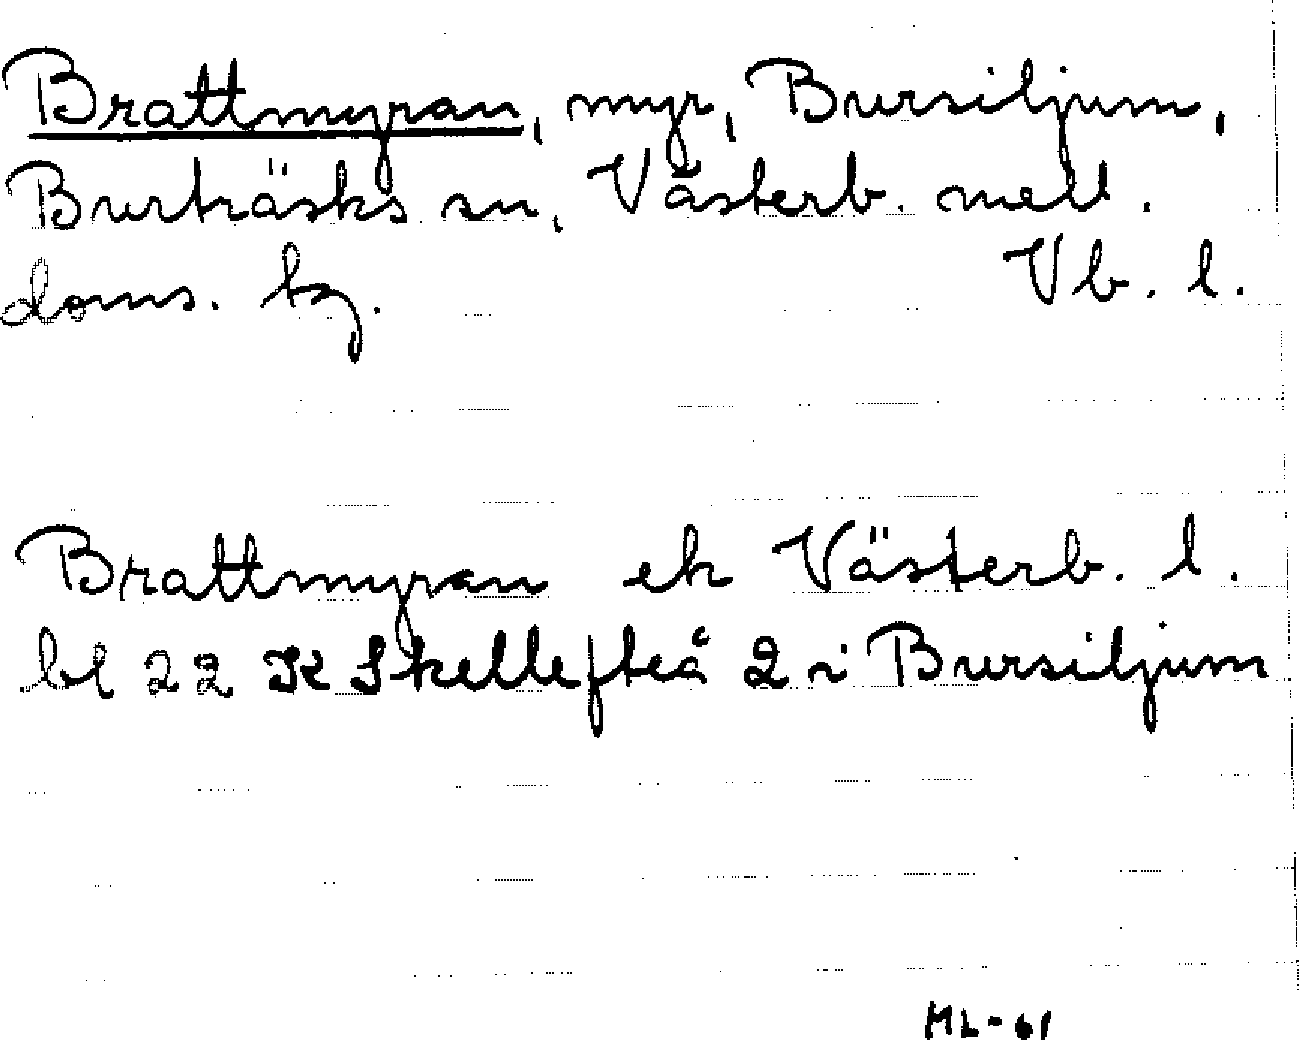 Brattmyran, myr, Bursiljum,
Burträsks sn, Västerb. mell.
doms. bg. Vb. l.
Brattmyran ek Västerb. l.
bl 22 K Skellefteå 2 i Bursiljum
ML-61